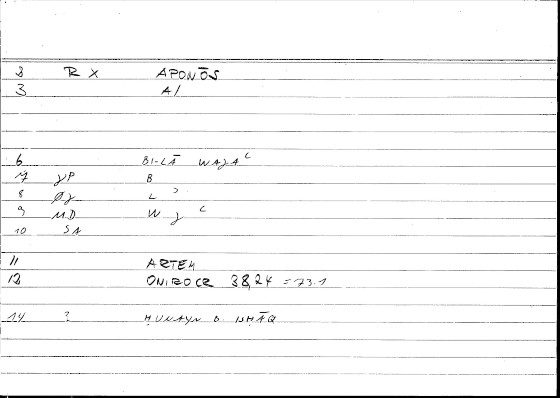 3 R X APONŌS
3 A/
6 BI-LĀ WAǦAʿ
7 γP B
8 Øγ L ʾ
9 MD W ǧ ʿ
10 SA
11 ARTEM
12 ONIROCR 38,24 = 73.1
14 ? ḤUNAYN B. ISḤĀQ